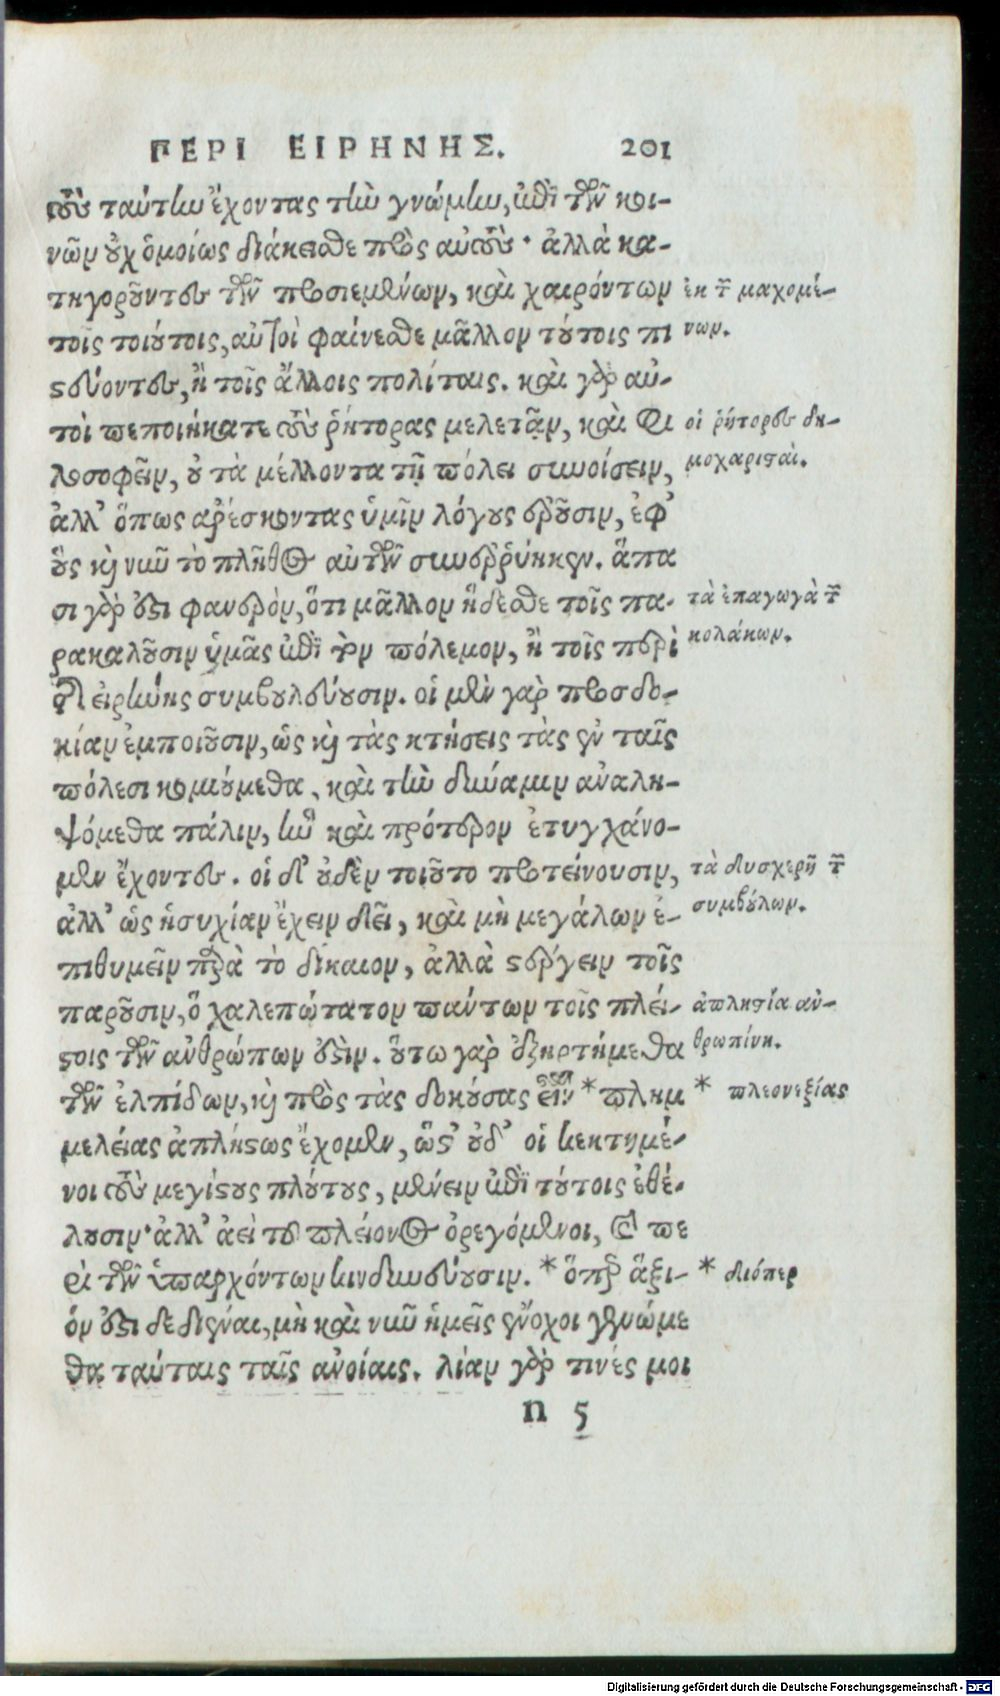 ΠΕΡΙ ΕΙΡΗΝΗΣ. 201
τοὺς ταύτην ἔχοντας τὴν γνώμην, ἐπὶ τῶν κοι-
νῶν οὐχ ὁμοίως διάκεισθε πρὸς αὐτούς· ἀλλὰ κα-
τηγοροῦντες τῶν προϊεμένων, καὶ χαιρόντων
τοῖς τοιούτοις, αὐτοὶ φαίνεσθε μᾶλλον τούτοις πι
στεύοντες, ἢ τοῖς ἄλλοις πολίταις. καὶ γὰρ αὐ-
τοὶ πεποιήκατε τοὺς ῥήτορας μελετᾷν, καὶ φι
λοσοφεῖν, οὐ τὰ μέλλοντα τῇ πόλει συνοίσειν,
ἀλλ' ὅπως ἀρέσκοντας ὑμῖν λόγους ἐροῦσιν, ἐφ'
οὓς καὶ νῦν τὸ πλῆθος αὐτῶν συνεῤῥύηκεν. ἅπα
σι γὰρ ἐστι φανερὸν, ὅτι μᾶλλον ἥδεσθε τοῖς πα-
ρακαλοῦσιν ὑμᾶς ἐπὶ τὸν πόλεμον, ἢ τοῖς περὶ
τῆς εἰρήνης συμβουλεύουσιν. οἱ μὲν γὰρ προσδο-
κίαν ἐμποιοῦσιν, ὡς καὶ τὰς κτήσεις τὰς ἐν ταῖς
πόλεσι κομιούμεθα, καὶ τὴν δύναμιν ἀναλη-
ψόμεθα πάλιν, ἣν καὶ πρότερον ἐτυγχάνο-
μεν ἔχοντες. οἱ δ' οὐδὲν τοιοῦτο προτείνουσιν,
ἀλλ' ὡς ἡσυχίαν ἔχειν δεῖ, καὶ μὴ μεγάλων ἐ-
πιθυμεῖν παρὰ τὸ δίκαιον, ἀλλὰ στέργειν τοῖς
παροῦσιν, ὃ χαλεπώτατον πάντων τοῖς πλεί-
στοις τῶν ἀνθρώπων ἐστὶν. οὕτω γὰρ ἐξηρτήμεθα
τῶν ἐλπίδων, καὶ πρὸς τὰς δοκούσας εἶναι * πλημ
μελείας ἀπλήστως ἔχομεν, ὥστ' οὐδ' οἱ κεκτημέ-
νοι τοὺς μεγίστους πλούτους, μένειν ἐπὶ τούτοις ἐθέ-
λουσιν· ἀλλ' ἀεὶ τοῦ πλείονος ὀρεγόμενοι, καὶ πε
ρὶ τῶν ὑπαρχόντων κινδυνεύουσιν. * ὅπερ ἄξι-
όν ἐστι δεδιέναι, μὴ καὶ νῦν ἡμεῖς ἔνοχοι γενώμε
θα ταύταις ταῖς ἀνοίαις. λίαν γὰρ τινές μοι
n 5
ἐκ τῶν μαχομέ-
νων.
οἱ ῥήτορες δη-
μοχαρισταὶ.
τὰ ἐπαγωγὰ τῶν
κολάκων.
τὰ δυσχερῆ τῶν
συμβούλων.
ἀπληστία ἀν-
θρωπίνη.
* πλεονεξίας
* διόπερ
Digitalisierung gefördert durch die Deutsche Forschungsgemeinschaft - DFG